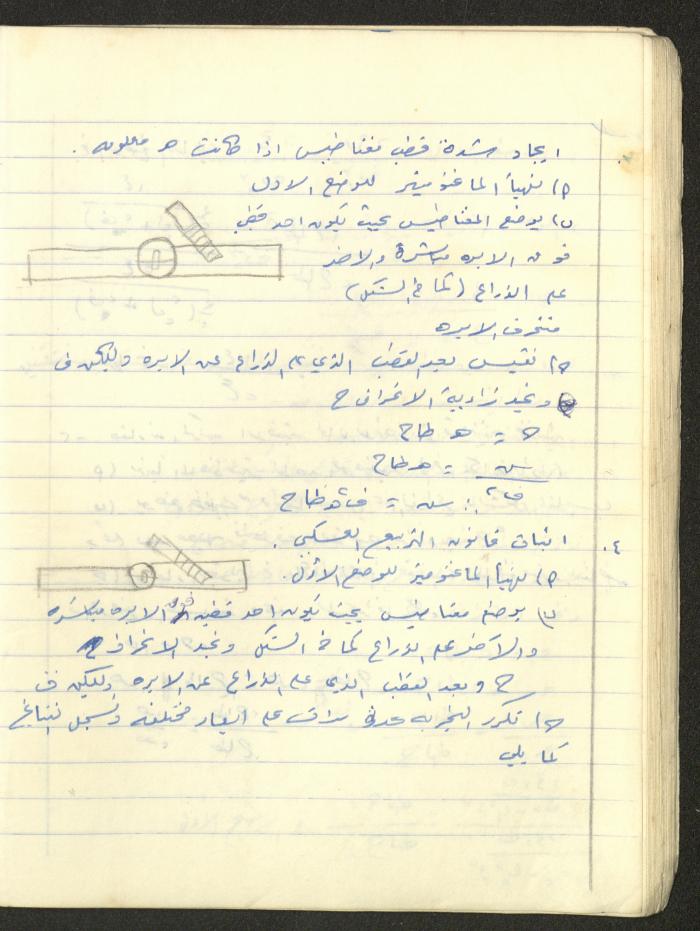 ايجاد شدة قطب مغناطيس اذا كانت هـ معلومه .
١) نهيأ الماغنوميتر للوضع الاول
ب) يوضع المغناطيس بحيث يكون احد قطبيه
فوق الابره مباشرة والاخر
على الذراع (كما في الشكل)
فتنحرف الابره
ج) نقيس بعد القطب الذي على الذراع عن الابره وليكن ف
ونجد زاوية الانحراف ح
ح = هـ ظاح
س = هـ ظاح
ف٢
∴ س = ف٢ هـ ظاح
٤. اثبات قانون التربيع العكسي .
١) نهيأ الماغنوميتر للوضع الاول .
ب) يوضع مغناطيس بحيث يكون احد قطبيه فوق الابره مباشره
والآخر على الذراع كما في الشكل ونجد الانحراف
ح وبعد القطب الذي على الذراع عن الابره وليكن ف
ج) نكرر التجربه عدة مرات على ابعاد مختلفه ونسجل النتائج
كما يلي